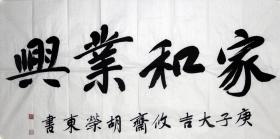 家和業興
庚子大吉攸齋胡榮東書